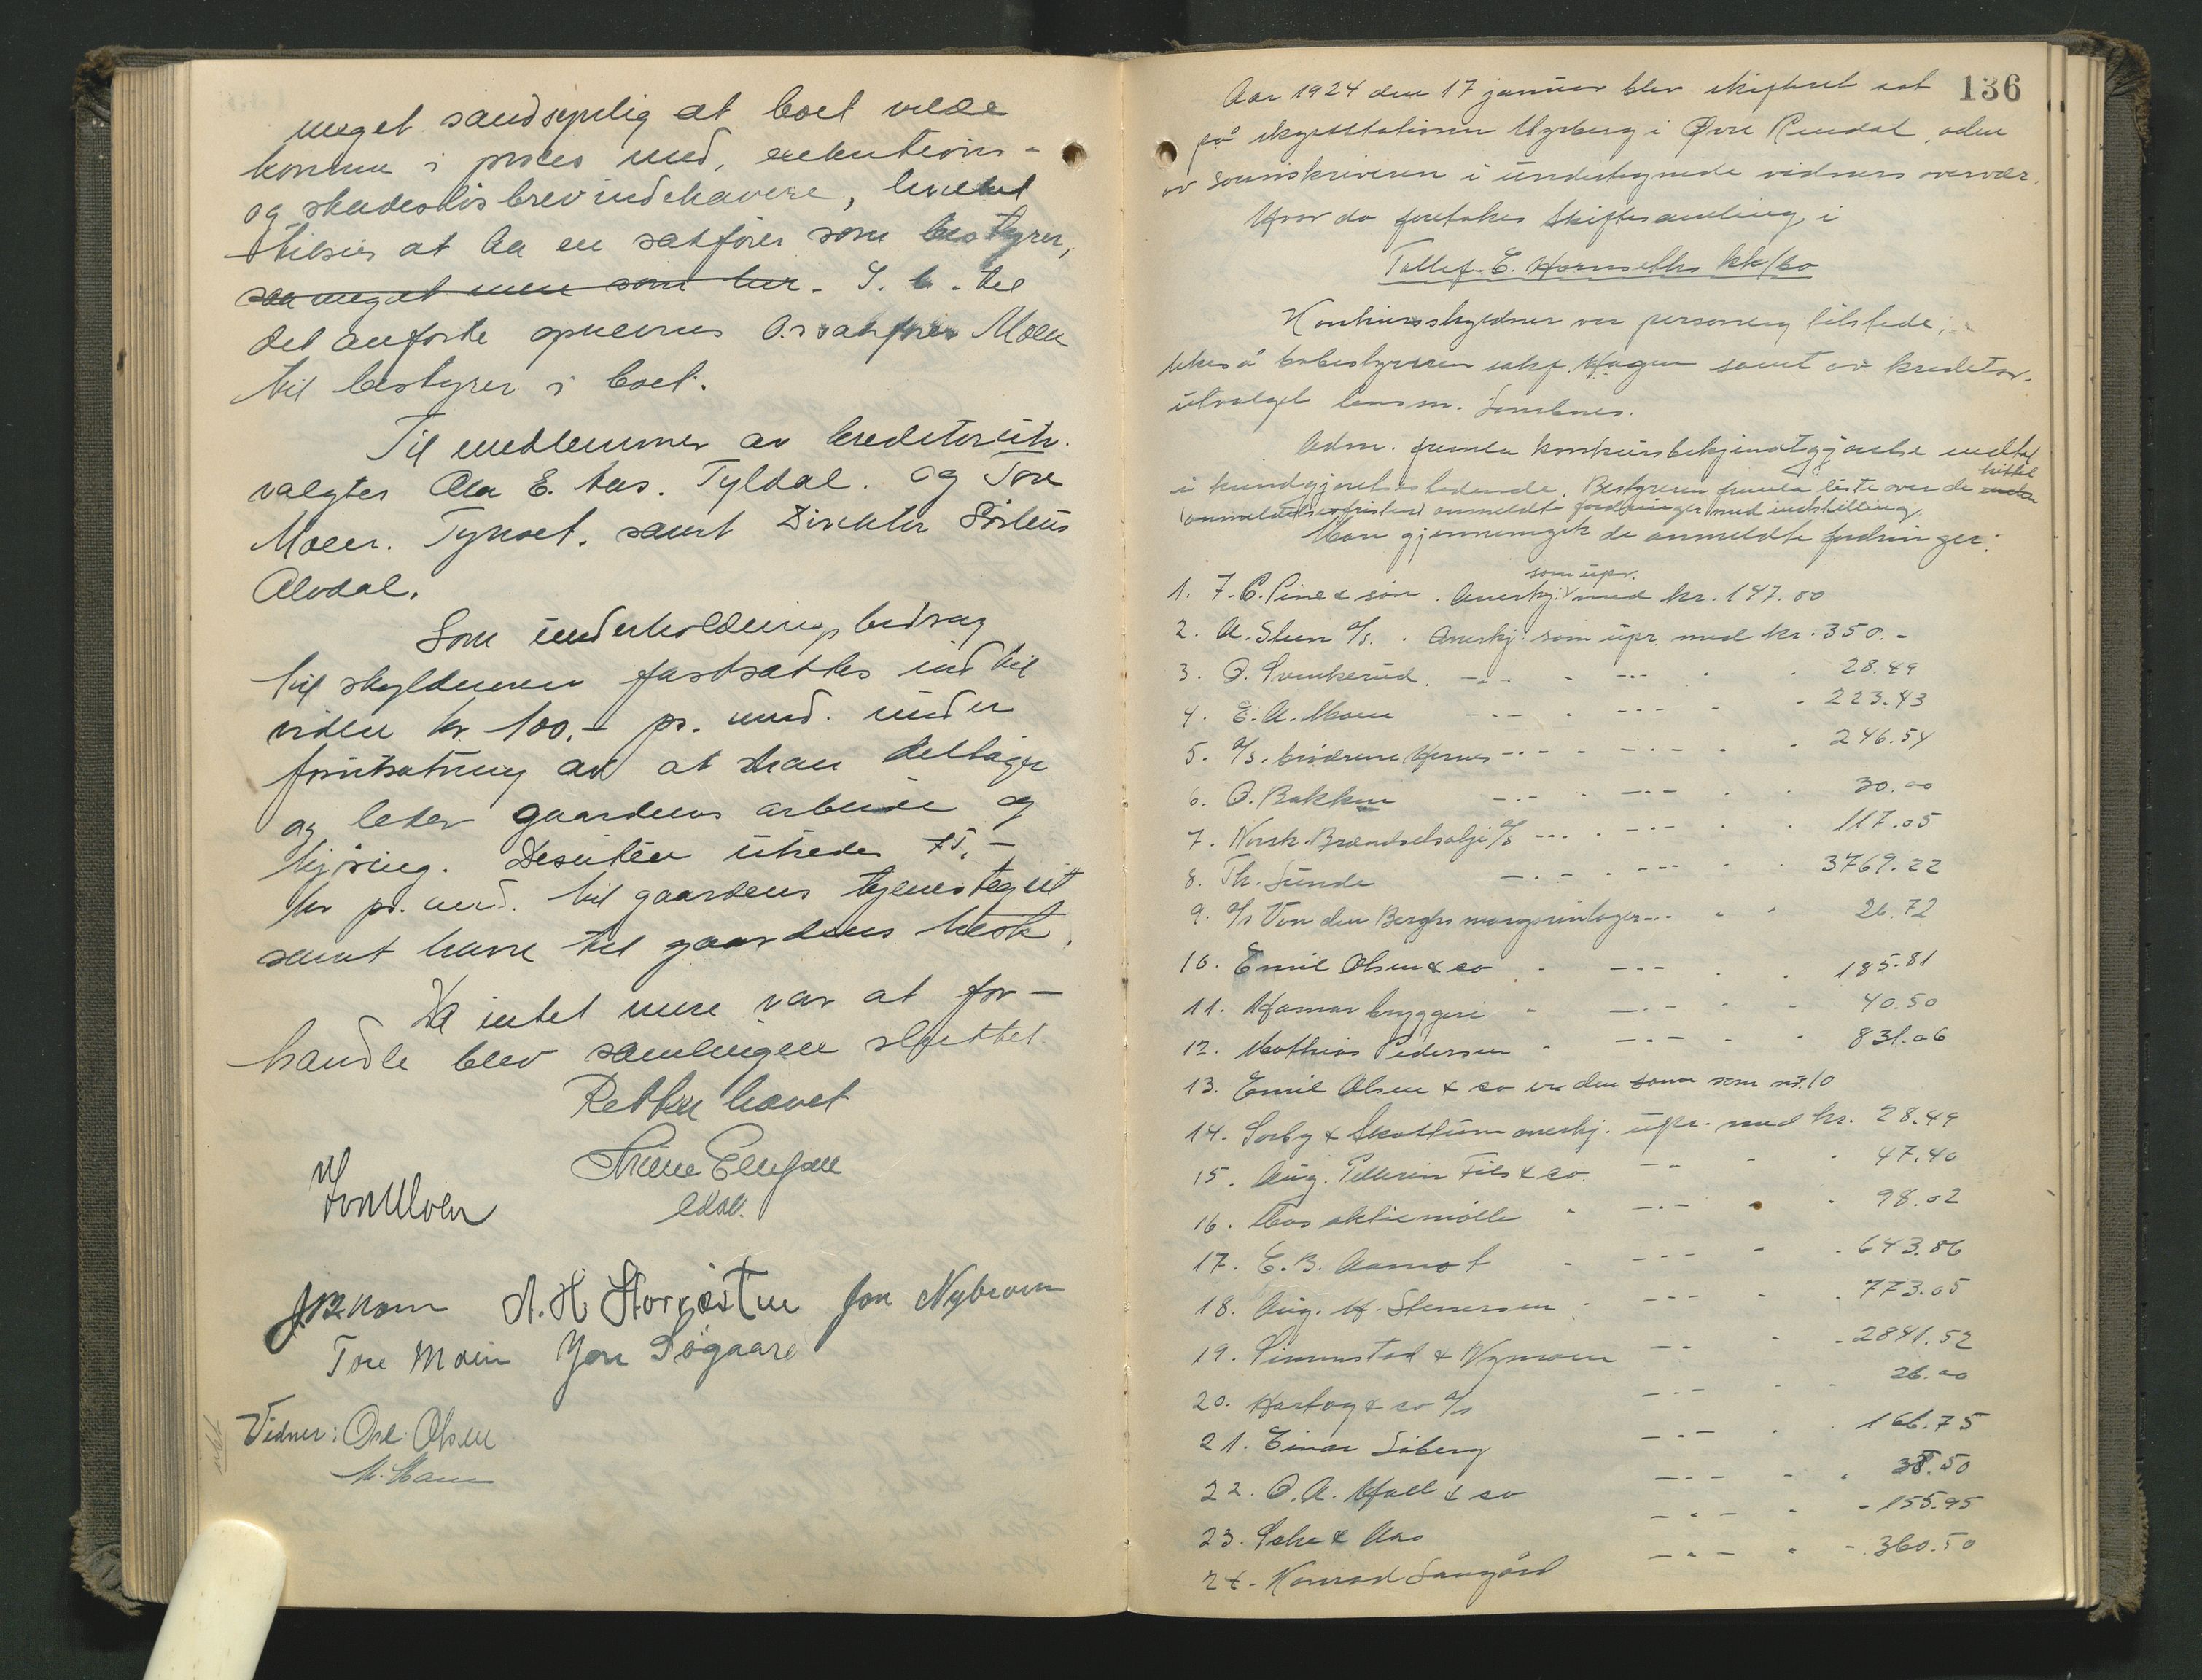 meget sandsynlig at boet vilde
komme i proces med, exekutions-
og skadesløsbrevindehavere, hvilket
tilsier at ha en sakfører som bestyrer,
saa meget mere som her. I. h. til
det anførte opnevnes O.r sakfører Moen
til bestyrer i boet.
Til medlemmer av kreditorutv.
valgtes Ola E. Aas. Tyldal. og Tore
Moen. Tynset. samt Direktør
Alvdal.
Som underholdningsbidrag
til skyldneren fastsattes indtil
videre kr. 100.- pr. mnd. under
forutsætning av at han deltager
og leder gaardens arbeide og
kjøring. Desuten utredes 75.-
kr pr. mnd. til gaardens tjenestegut
samt havre til gaardens hest.
Da intet mere var at for-
handle blev samlingen sluttet
Retten hævet
Jon Moen
A. H. Storrøsten Jon Nybroen
Tore Moen Jon Søgaard
Vidner: Ole Olsen
136
Aar 1924 den 17 januar blev skifteret sat
på skysstationen Ugberg i Øvre Rendal, aden
av sorenskriveren i undertegnede vidners overvær.
Hvor da foretokes skiftesamling i
Tollef E. Hornseths kk/bo
Konkursskyldner var personlig tilstede,
likeså bobestyreren sakf. Hagen samt av kreditor-
utvalget lensm.
Adm. fremla konkursbekjendtgjørelse indtat
i kundgjørelsestidende. Bestyreren fremla liste over de inden hittil
(anmeldelsesfristen) anmeldte fordringer med indstilling.
Man gjennemgik de anmeldte fordringer:
1. F. C. Pine & søn. Anerkj. som upr. med kr. 147.00
2. A. Steen A/s. Anerkj. som upr. med kr. 350.-
3. O. Svenkerud. -.- - --- 28.49
4. E. A. Moen --- - --- - 223.43
5. A/s. brødrene Hernes --- - --- - 246.54
6. O. Bakken -.- - --- - 30.00
7. Norsk. Brændselsolje A/S --- - --- - 117.05
8. Th. Sunde -.- - --- - 3769.22
9. A/s Van den Berghs margarinlager --- - - 26.72
10. Emil Olsen & co - --- - 185.81
11. Hamar bryggeri - --- - 40.50
12. Mathias Pedersen - --- - 831.06
13. Emil Olsen & co er den samme som nr. 10
14. Sørby & Skattum anerkj. upr. med kr. 28.49
15. Aug. Pellerin Fils & co. -- - 47.40
16. Mos aktiemølle - --- - 98.02
17. E. B. Aamot - --- - 643.86
18. Aug. H. Stenersen - --- - 773.05
19. Simenstad & Nymoen -- - 2841.52
20. Hartog & co A/s --- - 26.00
21. Einar Siberg --- - 166.75
22. O. A. Hall & co --- - 38.50
23. & Aas --- - 155.95
24. Konrad Langård --- - 360.50